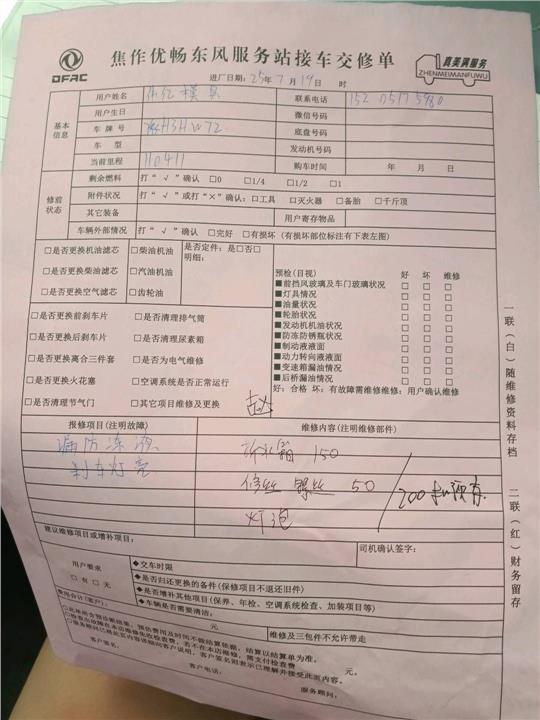 DFAC
焦作优畅东风服务站接车交修单
真美满服务
ZHENMEIMANFUWU
进厂日期：25年7月19日 时
基本信息
用户姓名 联系电话
用户生日 微信号码
车牌号 底盘号码
车型 发动机号码
当前里程 110411 购车时间 年 月 日
修前状态
剩余燃料 打“√”确认 □0 □1/4 □1/2 □1
附件状况 打“√”或打“×”确认：□工具 □灭火器 □备胎 □千斤顶
其它装备 用户寄存物品
车辆外部情况 打“√”确认 □完好 □有损坏（有损坏部位标注有下表左图）
□是否更换机油滤芯 □柴油机油 是否定件：是□否□
明细：
□是否更换柴油滤芯 □汽油机油
□是否更换空气滤芯 □齿轮油
□是否更换前刹车片 □是否清理排气筒
□是否更换后刹车片 □是否清理尿素箱
□是否更换离合三件套 □是否为电气维修
□是否更换火花塞 □空调系统是否正常运行
□是否清理节气门 □其它项目维修及更换
预检(目视) 好 坏 维修
■前挡风玻璃及车门玻璃状况 □ □ □
■灯具情况 □ □ □
■油量状况 □ □ □
■轮胎状况 □ □ □
■发动机机油状况 □ □ □
■防冻防锈瓶状况 □ □ □
■制动液液面 □ □ □
■动力转向液液面 □ □ □
■变速箱漏油情况 □ □ □
■后桥漏油情况 □ □ □
好：合格 坏：有故障需维修维修：用户确认维修
报修项目(注明故障) 维修内容(注明维修部件)
漏防冻液 拆水箱 150
刹车灯亮 螺丝 50
200
灯泡
建议维修项目或增补项目： 司机确认签字：
用户要求
□有 □无
◆交车时限
◆是否归还更换的备件(保修项目不退还旧件)
◆是否增补其他项目(保养、年检、空调系统检查、加装项目等)
◆车辆是否需要清洁：
费用合计(客户)： 元 维修及三包件不允许带走
□此单所含预诊断结果，预估费用及时间不做结算依据，结算以结算单为准。
□检查出故障在本店维修免收检查费，若不在本店维修，需支付检查费 元。
□服务顾问已将此页内容详细同客户说明，客户签名则表示已理解并接受此页内容。
客户签名： 客户电话： 服务顾问：
一联（白）随维修资料存档
二联（红）财务留存